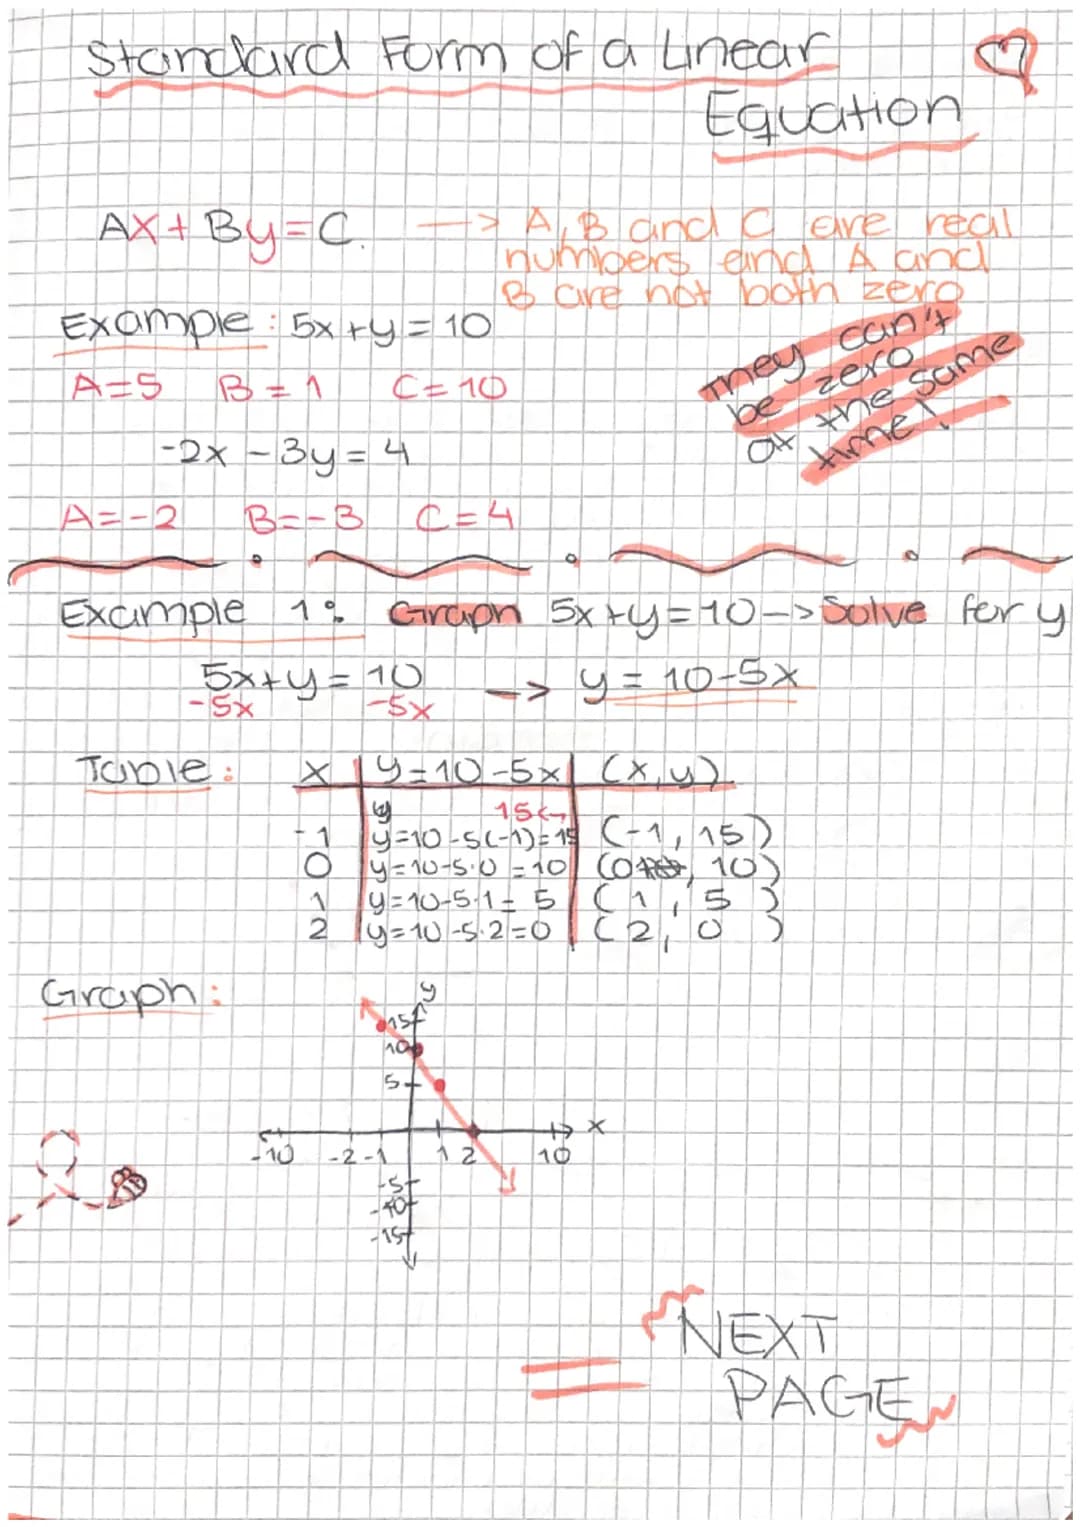 Standard Form of a Linear
Equation
Ax + By = C. --> A, B and C are real
numbers and A and
B are not both zero
They can't
be zero
at the same
time!
Example: 5x + y = 10
A=5 B=1 C=10
-2x - 3y = 4
A=-2 B=-3 C=4
Example 1: Graph 5x+y=10 --> Solve for y
5x+y = 10 --> y = 10-5x
-5x -5x
Table: x y=10-5x (x,y)
y 15<-
-1 y=10-5(-1)=15 (-1, 15)
0 y=10-5·0=10 (0, 10)
1 y=10-5·1=5 (1, 5)
2 y=10-5·2=0 (2, 0)
Graph:
y
15
10
5
x
-10 -2 -1 1 2 10
-5
-10
-15
NEXT
PAGE